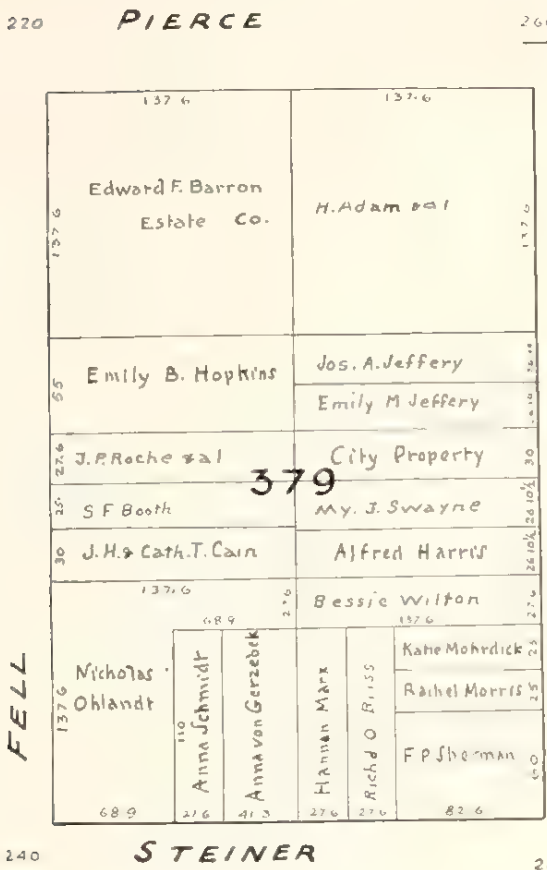 220 PIERCE 26
137 6 137.6
Edward F. Barron
Estate Co.
H. Adam &al
137 6
137 6
Emily B. Hopkins
55
Jos. A. Jeffery
Emily M Jeffery
27.6 J.P. Roche &al
City Property 30
379
25. S F Booth
My. J. Swayne 26 10½
30 J.H. & Cath. T. Cain
Alfred Harris 26 10½
137.6
Bessie Wilton 27 6
27 6
68 9
137 6
Nicholas
Ohlandt
137 6
110
Anna Schmidt
Anna von Gerzebek
Hannan Marx
Richd O Bliss
Katie Mohrdick 25
Rachel Morris 25
F P Sherman
68 9 27 6 41 3 27 6 27 6 82 6
FELL
240 STEINER 2